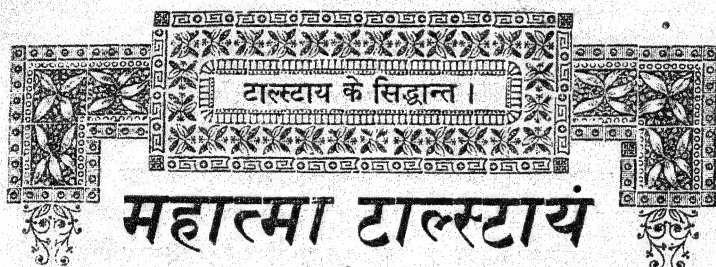 टाल्स्टाय के सिद्धान्त ।
महात्मा टाल्स्टायं